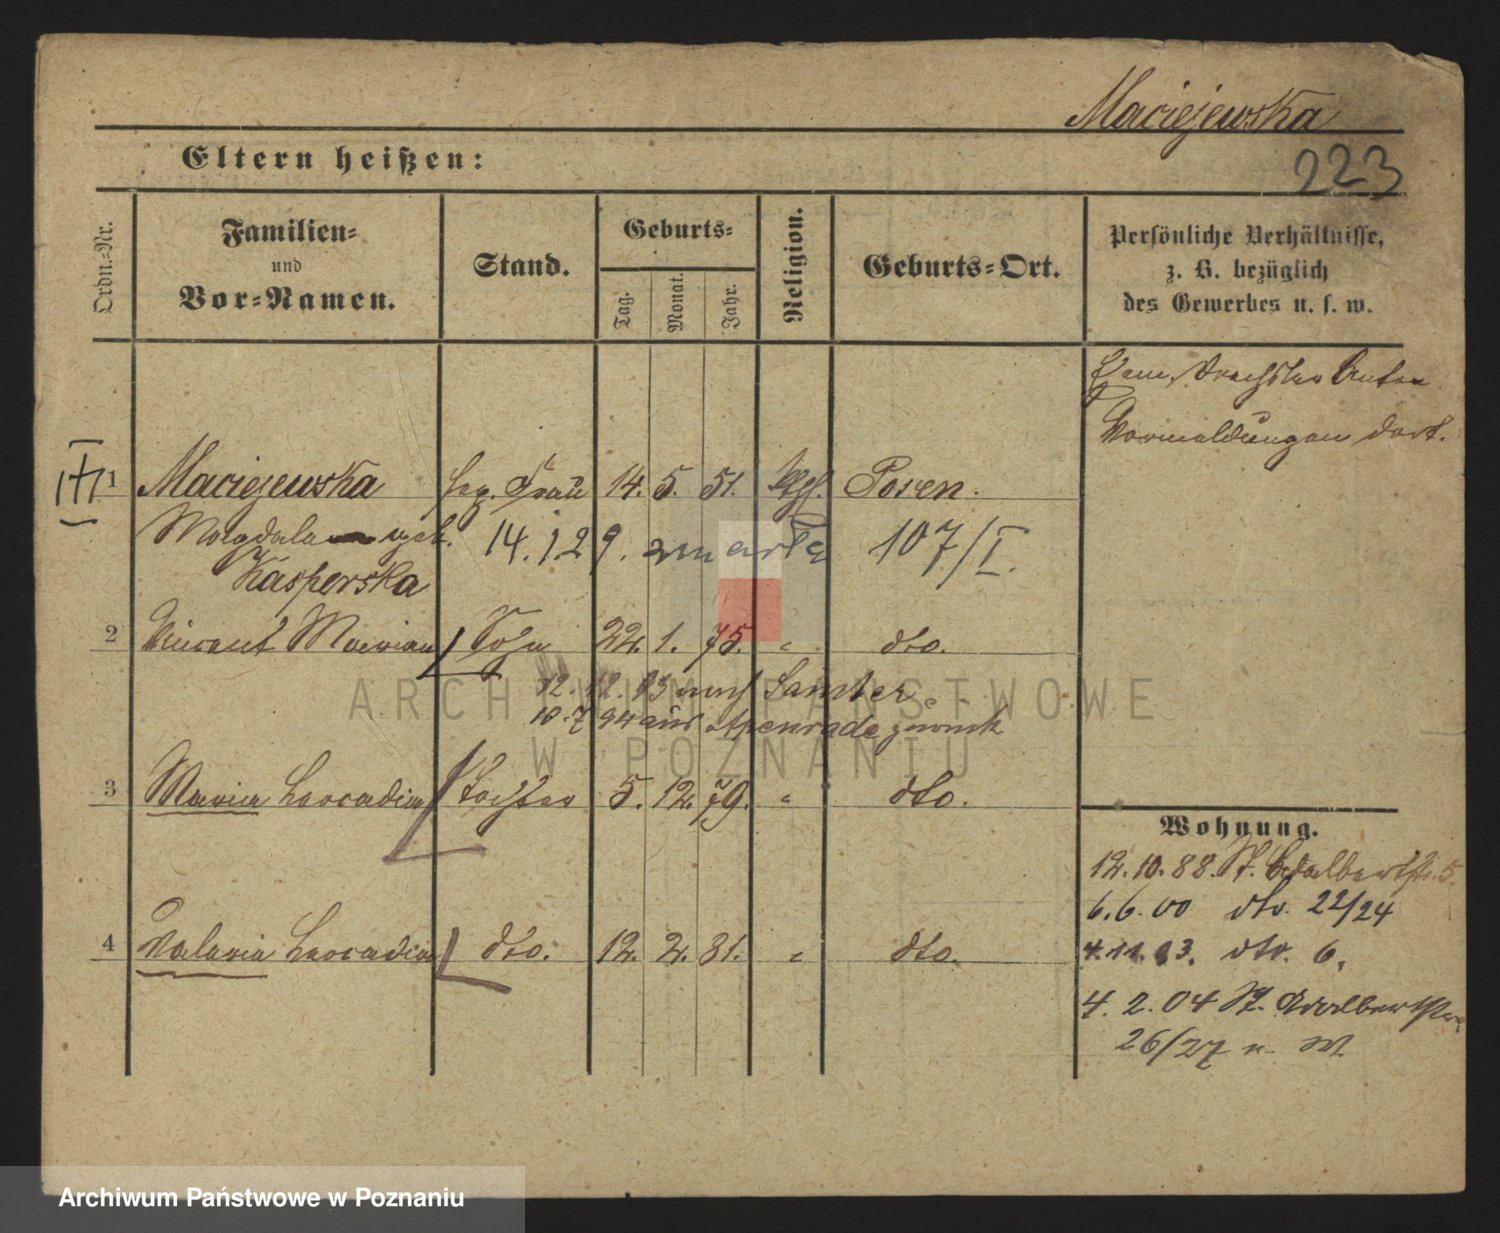 Maciejewska
223
Eltern heißen:
Ordn.-Nr.
Familien-
und
Vor-Namen.
Stand.
Geburts-
Tag.
Monat.
Jahr.
Religion.
Geburts-Ort.
Persönliche Verhältnisse,
z. B. bezüglich
des Gewerbes u. s. w.
Drechsler Anton
Vormeldungen dort.
1 Maciejewska sep. Frau 14. 5. 51. kath. Posen.
Magdalena geb. 14.12 9. 107/I.
Kasperska
2 Vincent Marian Sohn 22. 1. 75. " dto.
12. 12. 93 nach Samter
10.7 94 aus Apenrade zurück
3 Maria Leocadia Tochter 5. 12. 79. " dto.
4 Valeria Leocadia dto. 12. 2. 81. " dto.
Wohnung.
12.10.88. St. Adalbertstr. 5.
6.6.00 dto. 22/24
4.11.03. dto. 6.
4.2.04 St. Adalbertstr.
26/27
ARCHIWUM PAŃSTWOWE
W POZNANIU
Archiwum Państwowe w Poznaniu